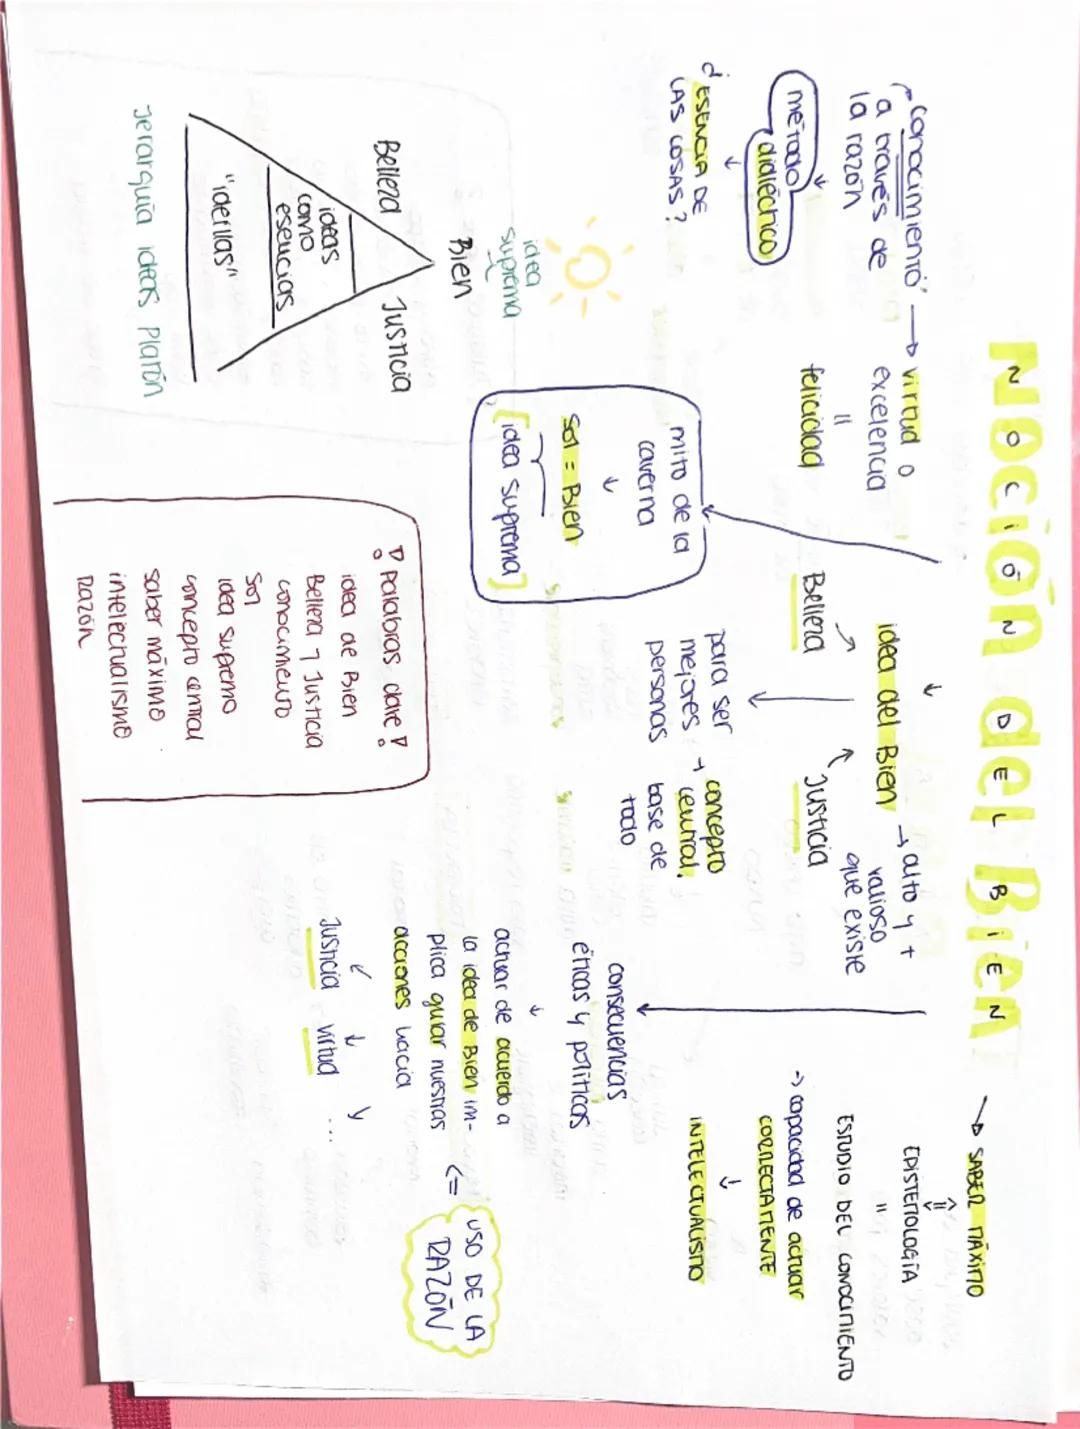 Noción del Bien
NOCIÓN DEL BIEN
→ SABER MÁXIMO
EPISTEMOLOGÍA
=
ESTUDIO DEL CONOCIMIENTO
→ capacidad de actuar
CORRECTAMENTE
↓
INTELECTUALISMO
conocimiento → virtud o
a través de excelencia
la razón
=
felicidad
método
didléctico
↓
¿ESENCIA DE
LAS COSAS?
idea del Bien → alto y +
valioso
que existe
Belleza
Justicia
para ser
mejores → concepto
personas central,
base de
todo
mito de la
caverna
↓
Sol = Bien
[idea suprema]
consecuencias
éticas y políticas
↓
actuar de acuerdo a
la idea de Bien im-
plica guiar nuestras
acciones hacia
Justicia virtud y ...
<= USO DE LA
RAZÓN
idea
suprema
Bien
Belleza Justicia
ideas
como
esencias
"idefllas"
Jerarquía ideas Platón
¡Palabras clave!
idea de Bien
Belleza y Justicia
conocimiento
Sol
idea suprema
concepto central
saber máximo
intelectualismo
razón